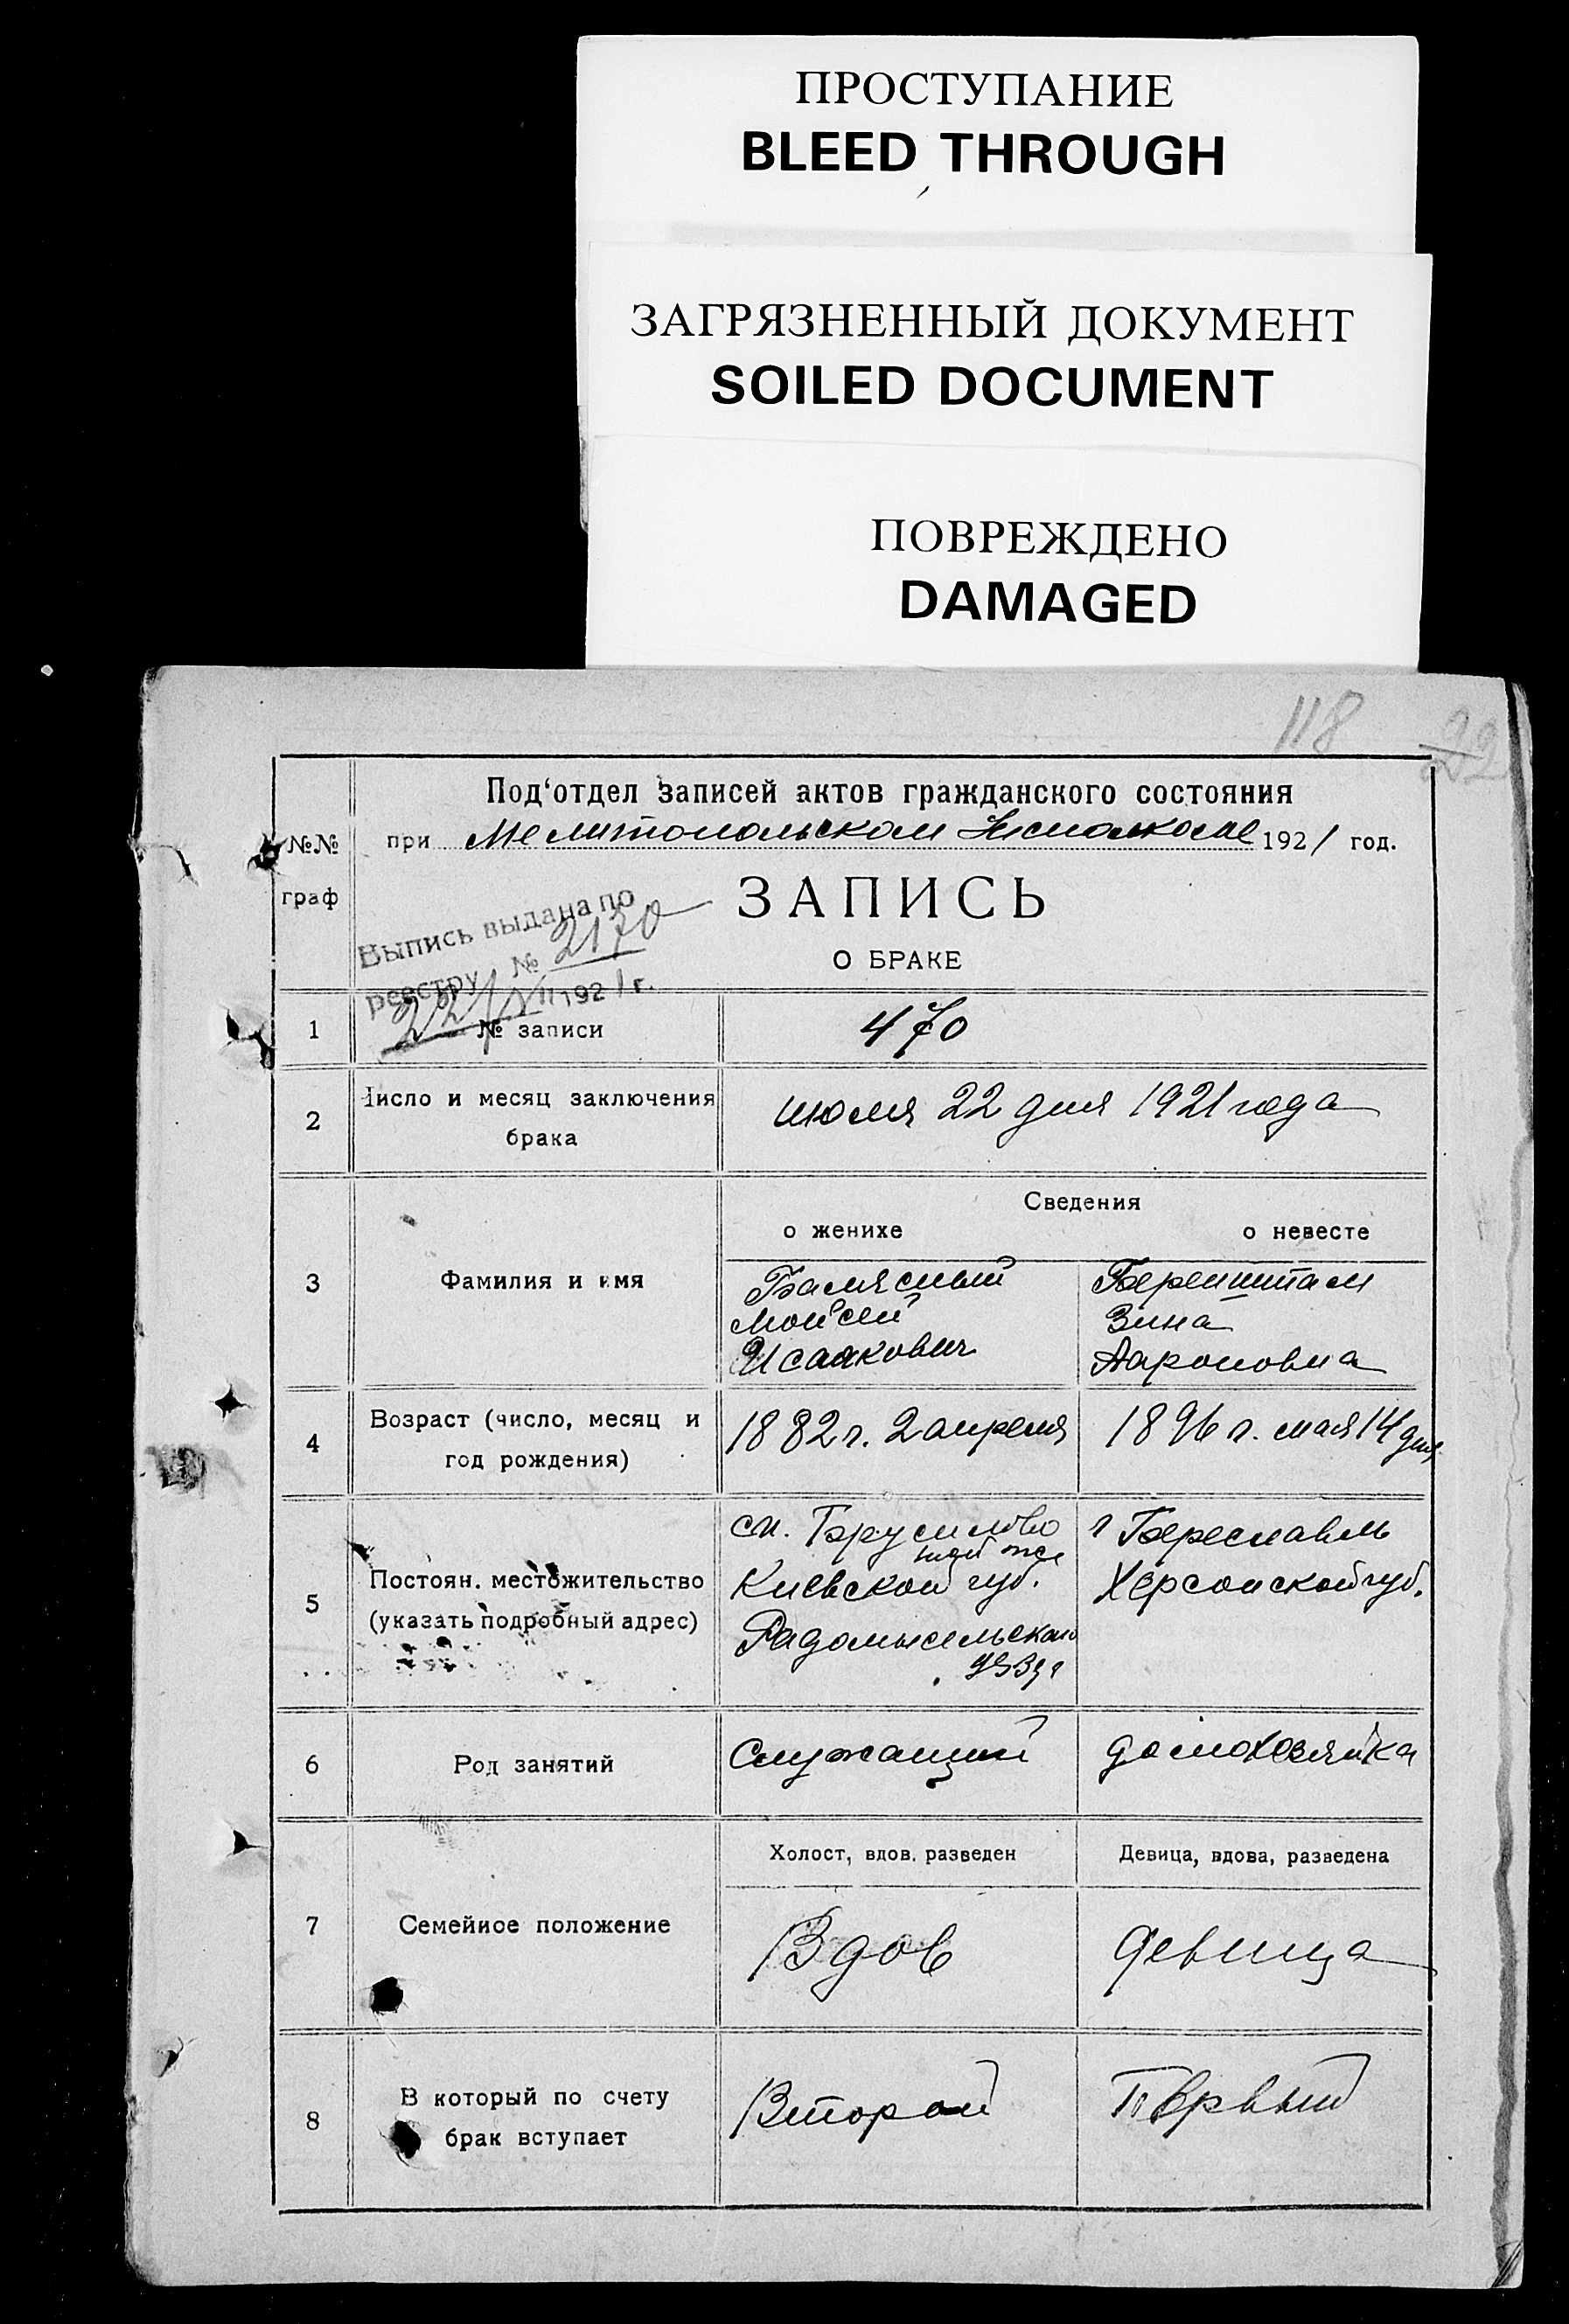 ПРОСТУПАНИЕ
BLEED THROUGH
ЗАГРЯЗНЕННЫЙ ДОКУМЕНТ
SOILED DOCUMENT
ПОВРЕЖДЕНО
DAMAGED
118
Под'отдел записей актов гражданского состояния
№№ граф
при Мелитопольском Исполкоме 1921 год.
Выпись выдана по
реестру № 2170
22/VII 1921 г.
ЗАПИСЬ
О БРАКЕ
1 № записи 470
2 Число и месяц заключения
брака
июля 22 дня 1921 года
Сведения
о женихе о невесте
3 Фамилия и имя
Балясный Беренштам
Моисей Зина
Исаакович Аароновна
4 Возраст (число, месяц и
год рождения)
1882 г. 2 апреля 1896 г. мая 14 дня
5 Постоян. местожительство
(указать подробный адрес)
Брусилово г Береславль
Киевской губ. Херсонской губ.
Радомысельского
уезда
6 Род занятий Служащий домохозяйка
Холост, вдов. разведен Девица, вдова, разведена
7 Семейное положение Вдов девица
8 В который по счету
брак вступает
Второй Первый